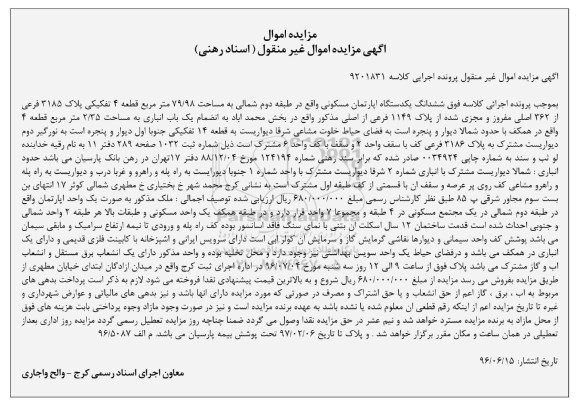 مزایده اموال
آگهی مزایده اموال غیر منقول ( اسناد رهنی)
آگهی مزایده اموال غیر منقول پرونده اجرایی کلاسه ۹۲۰۱۸۳۱
بموجب پرونده اجرائی کلاسه فوق ششدانگ یکدستگاه اپارتمان مسکونی واقع در طبقه دوم شمالی به مساحت ۷۹/۹۸ متر مربع قطعه ۴ تفکیکی پلاک ۳۱۸۵ فرعی
از ۳۶۲ اصلی مفروز و مجزی شده از پلاک ۱۱۴۹ فرعی از اصلی مذکور واقع در بخش محمد اباد به انضمام یک باب انباری به مساحت ۲/۳۵ متر مربع قطعه ۴
واقع در همکف با حدود شمالا دیوار و پنجره است به فضای حیاط خلوت مشاعی شرقا دیواریست به قطعه ۱۴ تفکیکی جنوبا اول دیوار و پنجره است به نورگیر دوم
دیواریست مشترک به پلاک ۳۱۸۶ فرعی کف با سقف واحد ۲ و سقف با کف واحد ۶ مشترک است ذیل شماره ثبت ۱۰۳۲ صفحه ۲۸۹ دفتر ۱۱ به نام رقیه خدابنده
لو لب و سند به شماره چاپی ۰۰۳۴۹۲۴ صادر شده که برابر سند رهنی شماره ۱۲۴۱۹۴ مورخ ۸۸/۱۲/۰۴ دفتر ۱۷تهران در رهن بانک پارسیان می باشد حدود
انباری : شمالا دیواریست مشترک با انباری شماره ۲ شرقا دیواریست مشترک با واحد شماره ۱ جنوبا دیواریست به راه پله و راهرو و غربا درب و دیواریست به راه پله
و راهرو مشاعی کف روی پر عرصه و سقف ان با قسمتی از کف طبقه اول مشترک است به نشانی کرج محمد شهر خ بختیاری خ مطهری شمالی کوثر ۱۷ انتهای بن
بست سوم مجاور شرقی پ ۸۵ طبق نظر کارشناس رسمی مبلغ ۶۸۰/۰۰۰/۰۰۰ ریال ارزیابی شده توصیف اجمالی : ملک مذکور به صورت یک واحد اپارتمان واقع
در طبقه دوم شمالی در یک مجتمع مسکونی در ۴ طبقه و مجموعا ۷ واحد قرار دارد و در طبقه همکف یک واحد مسکونی و طبقات بالا هر طبقه ۲ واحد شمالی
و جنوبی احداث شده است قدمت ساختمان ۱۲ سال اسکلت ان بتنی با نمای سنگ فاقد اسانسور بوده کف راه پله و ورودی تا نیمه ارتفاع سرامیک و مابقی سیمان
می باشد پوشش کف واحد سیمانی و دیوارها نقاشی گرمایش گاز و سرمایش ان کولر ابی است دارای سرویس ایرانی و اشپزخانه با کابینت فلزی قدیمی و دارای یک
انباری در همکف می باشد و درفضای حیاط یک واحد سرویس بهداشتی نیز وجود دارد و محل تخلیه بوده و واحد مذکور دارای یک انشعاب برق مستقل و انشعاب
اب و گاز مشترک می باشد پلاک فوق از ساعت ۹ الی ۱۲ روز سه شنبه مورخ ۹۶/۰۷/۰۴ در اداره اجرای ثبت کرج واقع در میدان ازادگان ابتدای خیابان مطهری از
طریق مزایده بفروش می رسد مزایده از مبلغ ۶۸۰/۰۰۰/۰۰۰ ریال شروع و به بالاترین قیمت پیشنهادی نقدا فروخته می شود لازم به ذکر است پرداخت بدهی های
مربوط به اب ، برق ، گاز اعم از حق انشعاب و یا حق اشتراک و مصرف در صورتی که مورد مزایده دارای انها باشد و نیز بدهی های مالیاتی و عوارض شهرداری و
غیره تا تاریخ مزایده اعم از اینکه رقم قطعی ان معلوم شده یا نشده باشد به عهده برنده مزایده است و نیز در صورت وجود مازاد وجوه پرداختی بابت هزینه های فوق
از محل مازاد به برنده مزایده مسترد خواهد شد و نیم عشر در حق مزایده نقدا وصول می گردد ضمنا چناچه روز مزایده تعطیل رسمی گردد مزایده روز اداری بعداز
تعطیلی در همان ساعت و مکان مقرر برگزار خواهد شد . و پلاک تا تاریخ ۹۷/۰۲/۰۶ تحت پوشش بیمه پارسیان می باشد. م الف ۹۶/۵۰۸۷
تاریخ انتشار: ۹۶/۰۶/۱۵
معاون اجرای اسناد رسمی کرج - والح واجاری